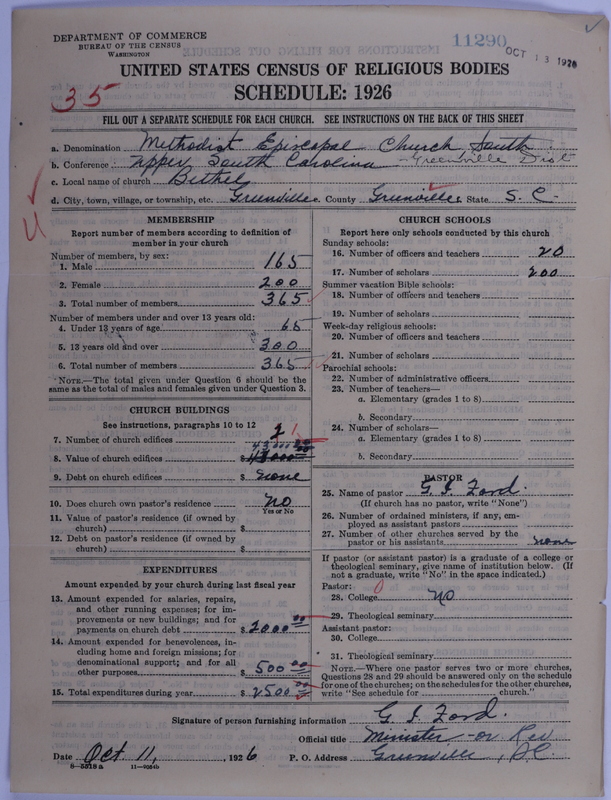 DEPARTMENT OF COMMERCE
BUREAU OF THE CENSUS
WASHINGTON
11290
OCT 13 1926
UNITED STATES CENSUS OF RELIGIOUS BODIES
SCHEDULE: 1926
35
FILL OUT A SEPARATE SCHEDULE FOR EACH CHURCH. SEE INSTRUCTIONS ON THE BACK OF THIS SHEET
a. Denomination Methodist Episcopal Church South
b. Conference Upper South Carolina - Greenville Dist
c. Local name of church Bethel
d. City, town, village, or township, etc. Greenville County Greenville State S. C.
MEMBERSHIP
Report number of members according to definition of
member in your church
Number of members, by sex:
1. Male 165
2. Female 200
3. Total number of members 365
Number of members under and over 13 years old:
4. Under 13 years of age 65
5. 13 years old and over 300
6. Total number of members 365
NOTE.—The total given under Question 6 should be the
same as the total of males and females given under Question 3.
CHURCH BUILDINGS
See instructions, paragraphs 10 to 12
7. Number of church edifices 2 1
8. Value of church edifices $
9. Debt on church edifices $ none
10. Does church own pastor's residence no
Yes or No
11. Value of pastor's residence (if owned by
church) $
12. Debt on pastor's residence (if owned by
church) $
EXPENDITURES
Amount expended by your church during last fiscal year
13. Amount expended for salaries, repairs,
and other running expenses; for im-
provements or new buildings; and for
payments on church debt $2000 00
14. Amount expended for benevolences, in-
cluding home and foreign missions; for
denominational support; and for all
other purposes $ 500 00
15. Total expenditures during year $2500 00
CHURCH SCHOOLS
Report here only schools conducted by this church
Sunday schools:
16. Number of officers and teachers 20
17. Number of scholars 200
Summer vacation Bible schools:
18. Number of officers and teachers
19. Number of scholars
Week-day religious schools:
20. Number of officers and teachers
21. Number of scholars
Parochial schools:
22. Number of administrative officers
23. Number of teachers—
a. Elementary (grades 1 to 8)
b. Secondary
24. Number of scholars—
a. Elementary (grades 1 to 8)
b. Secondary
PASTOR
25. Name of pastor G. I. Ford.
(If church has no pastor, write "None")
26. Number of ordained ministers, if any, em-
ployed as assistant pastors
27. Number of other churches served by the
pastor or his assistants none
If pastor (or assistant pastor) is a graduate of a college or
theological seminary, give name of institution below. (If
not a graduate, write "No" in the space indicated.)
Pastor:
28. College No
29. Theological seminary
Assistant pastor:
30. College
31. Theological seminary
NOTE.—Where one pastor serves two or more churches,
Questions 28 and 29 should be answered only on the schedule
for one of the churches; on the schedules for the other churches,
write "See schedule for church."
Signature of person furnishing information G. I. Ford.
Official title Minister - or Rev
Date Oct 11, 1926 P. O. Address Greenville, S.C.
8—5518a 11—9054b